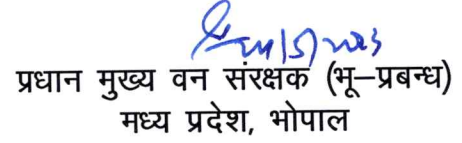 प्रधान मुख्य वन संरक्षक (भू–प्रबन्ध)
मध्य प्रदेश, भोपाल